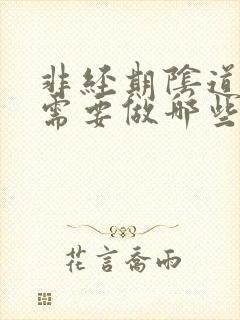 非經期陰道
需要做哪些
花言喬雨